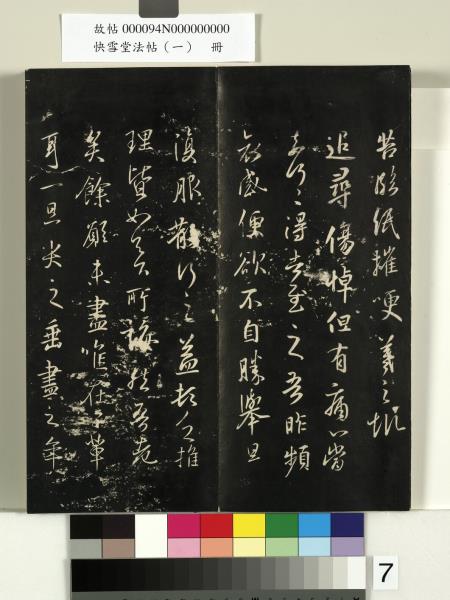 故帖 000094N000000000
快雪堂法帖（一） 冊
苦臨紙摧哽羲之
追尋傷悼但有痛心當
奈何〻得告慰之吾昨頻
哀感便欲不自勝舉旦
復服散行之益頓乏推
理皆如足下所誨然吾老
矣餘願未盡唯在子輩
耳一旦哭之垂盡之年
7